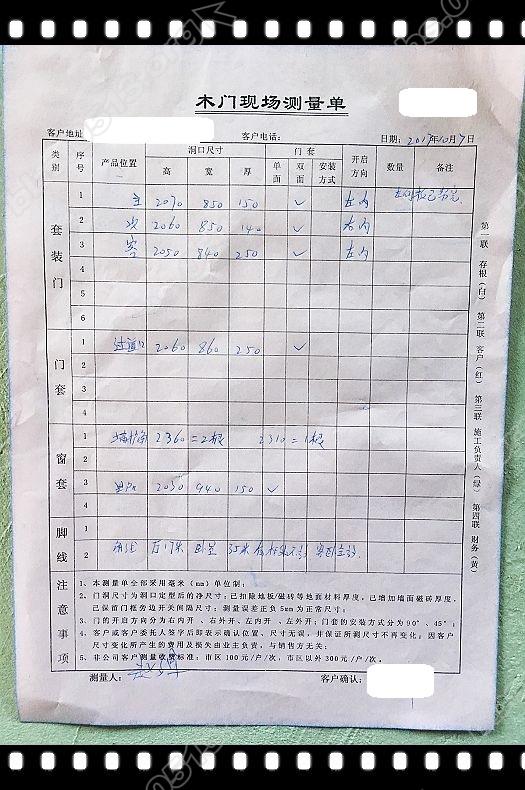 木门现场测量单
客户地址
客户电话:
日期: 2017年10月7日
类别 序号 产品位置 洞口尺寸 门套 开启方向 数量 备注
高 宽 厚 单面 双面 安装方式
套装门
1 主 2070 850 150 ✓ 左内
2 次 2060 850 140 ✓ 右内
3 客 2050 840 250 ✓ 左内
4
5
6
门套
1 过道口 2060 860 250 ✓
2
3
4
窗套
1 2360=2根 2310=1根
2
3 2030 940 150 ✓
脚线
1
2
注意事项
1、本测量单全部采用毫米(mm)单位制;
2、门洞尺寸为洞口定型后的净尺寸;已扣除地板/磁砖等地面材料厚度,已增加墙面磁砖厚度,
已保留门框旁边开关间隔尺寸;测量误差正负5mm为正常尺寸;
3、门的开启方向分为右内开、右外开、左内开、左外开;门套的安装方式分为90°、45°;
4、客户或客户委托人签字后即表示确认位置、尺寸无误,并保证所测尺寸不再变化;因客户
尺寸变化所产生的费用及损失由业主负责,与销售方无关;
5、非公司客户测量收费标准:市区100元/户/次,市区以外300元/户/次。
测量人:
客户确认:
第一联 存根(白) 第二联 客户(红) 第三联 施工负责人(绿) 第四联 财务(黄)